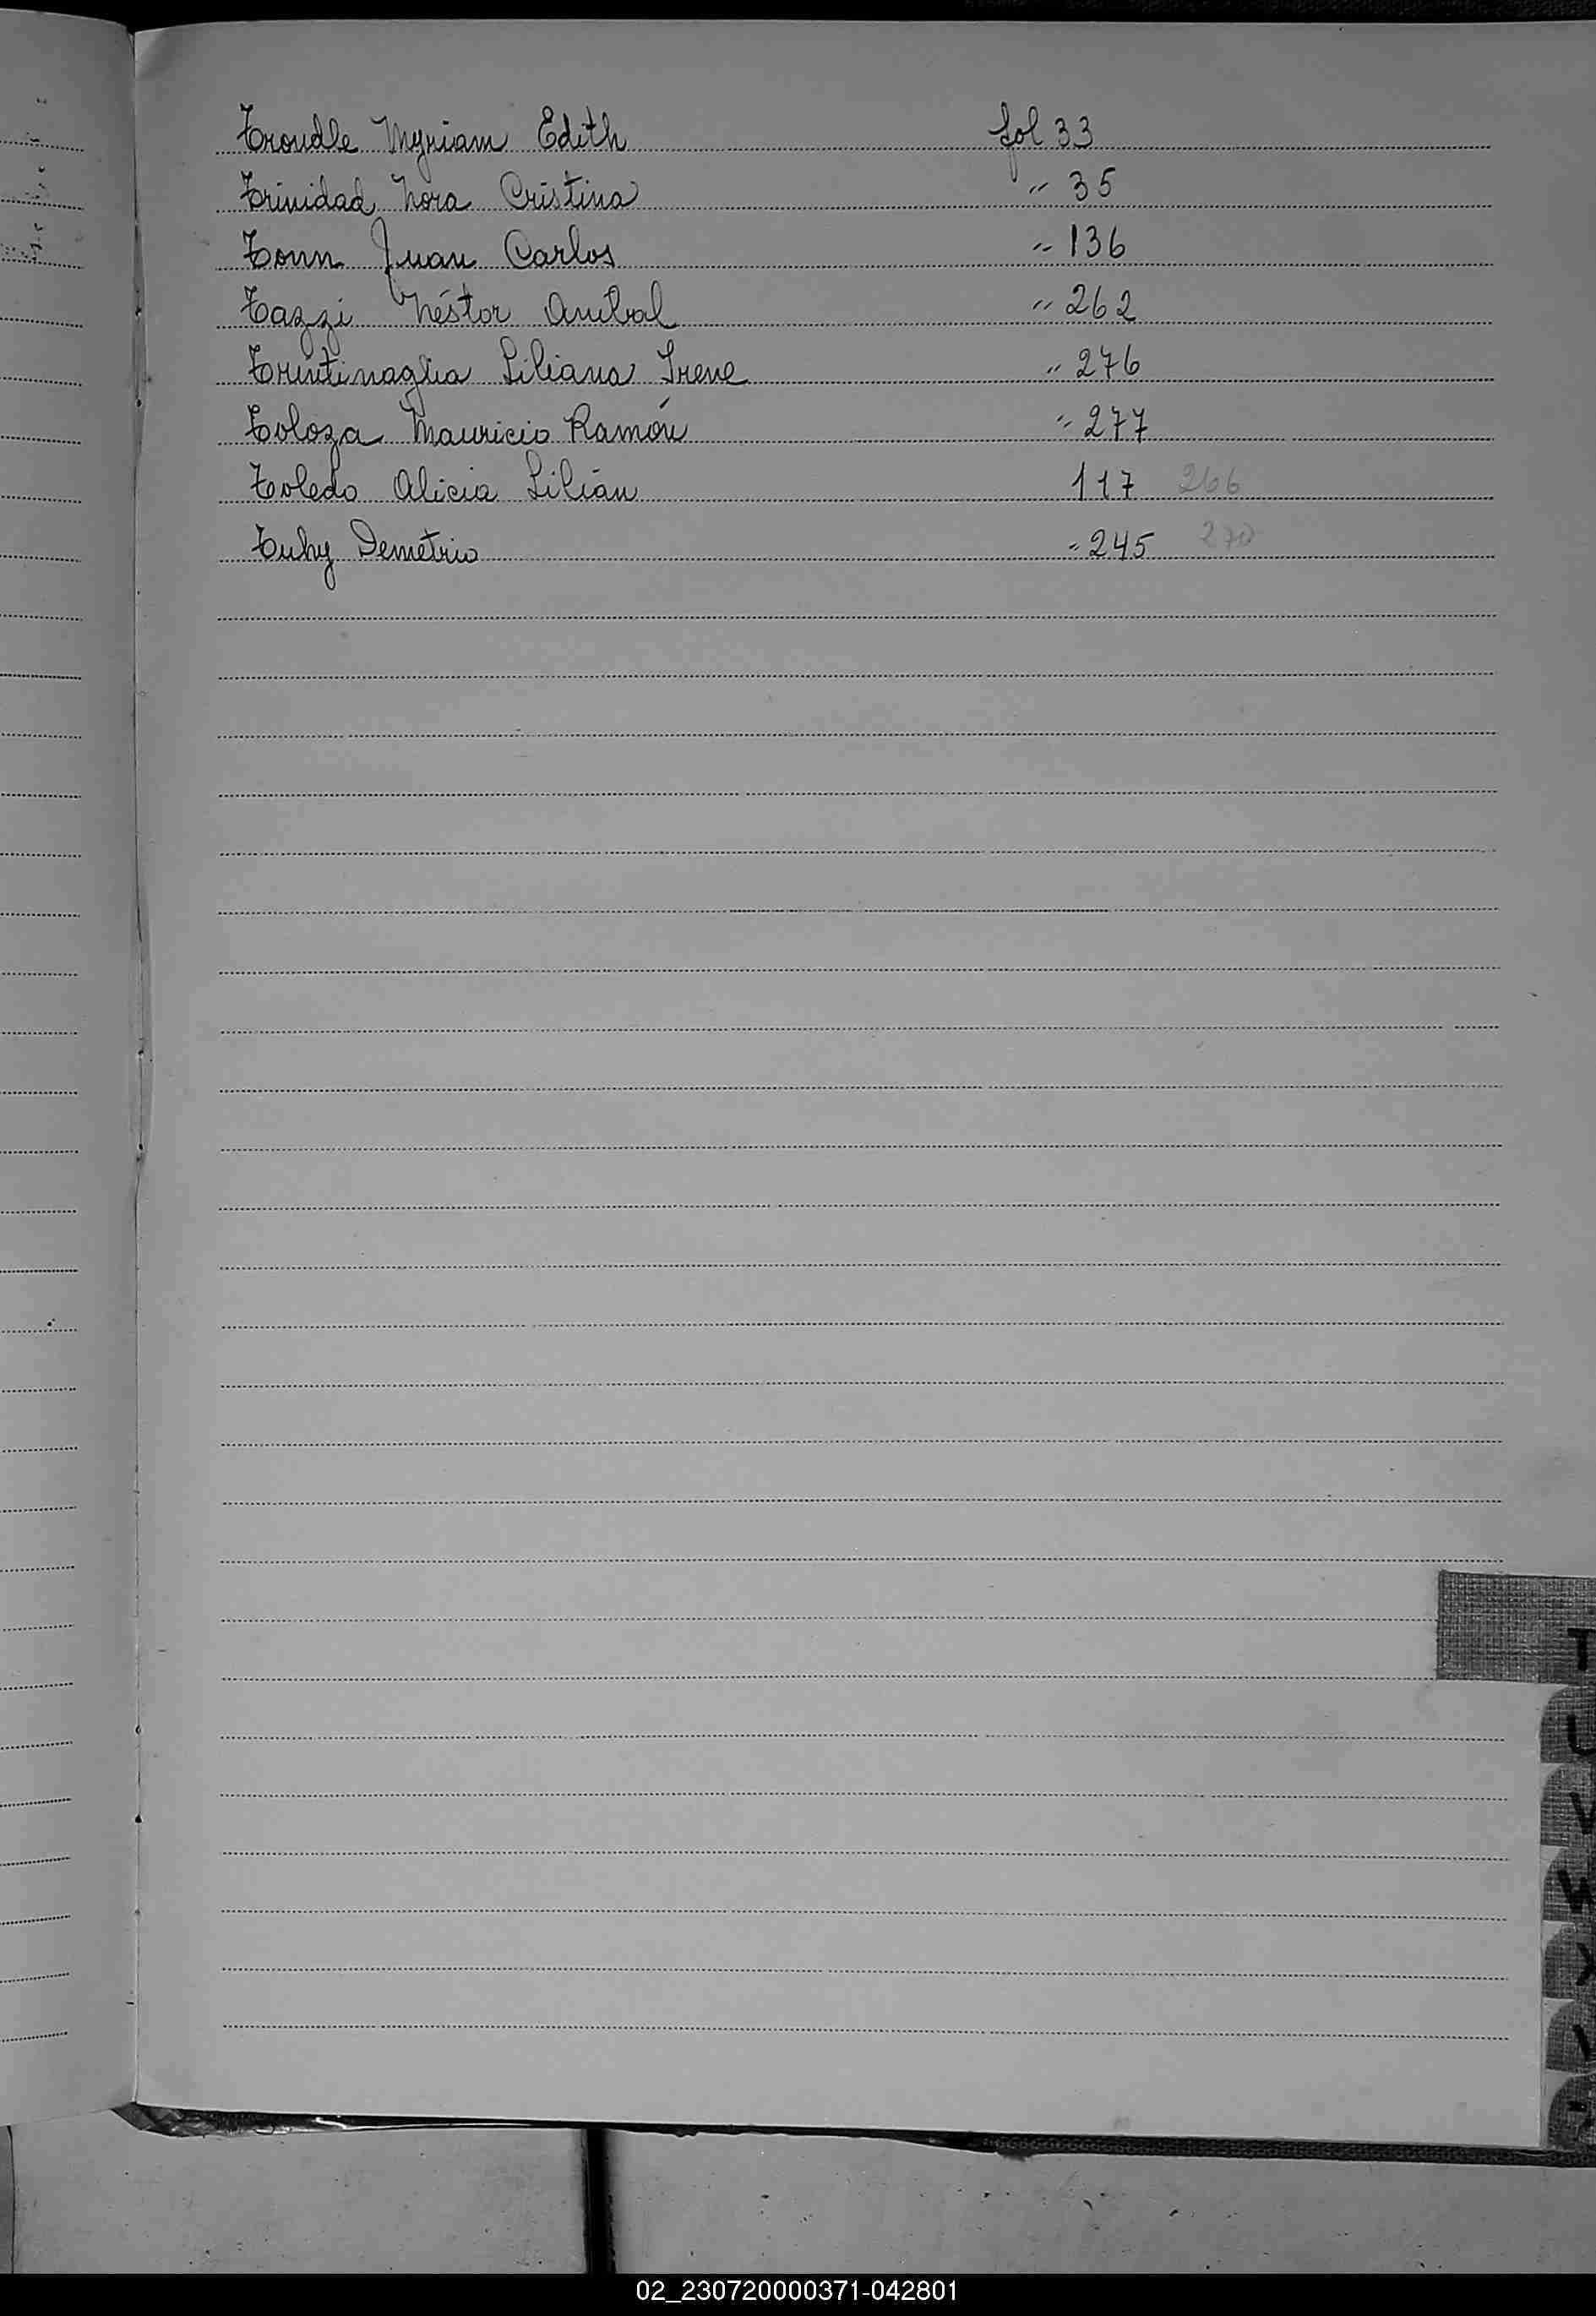 Troudle Myriam Edith fol 33
Trinidad Nora Cristina " 35
Tonn Juan Carlos " 136
Tazzi Néstor Anibal " 262
Trintinaglia Liliana Irene " 276
Toloza Mauricio Ramón " 277
Toledo Alicia Lilián 117 266
Tuhy Demétrio " 245 270
T
U
V
W
X
02_230720000371-042801